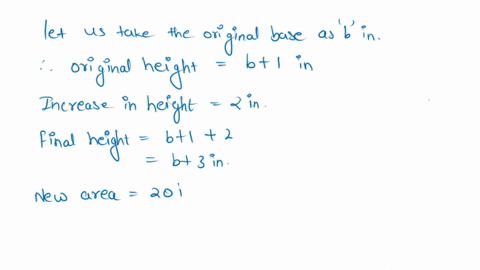 let us take the original base as 'b' in.
∴ original height = b+1 in
Increase in height = 2 in.
Final height = b+1 + 2
= b+3 in.
New area = 20 i